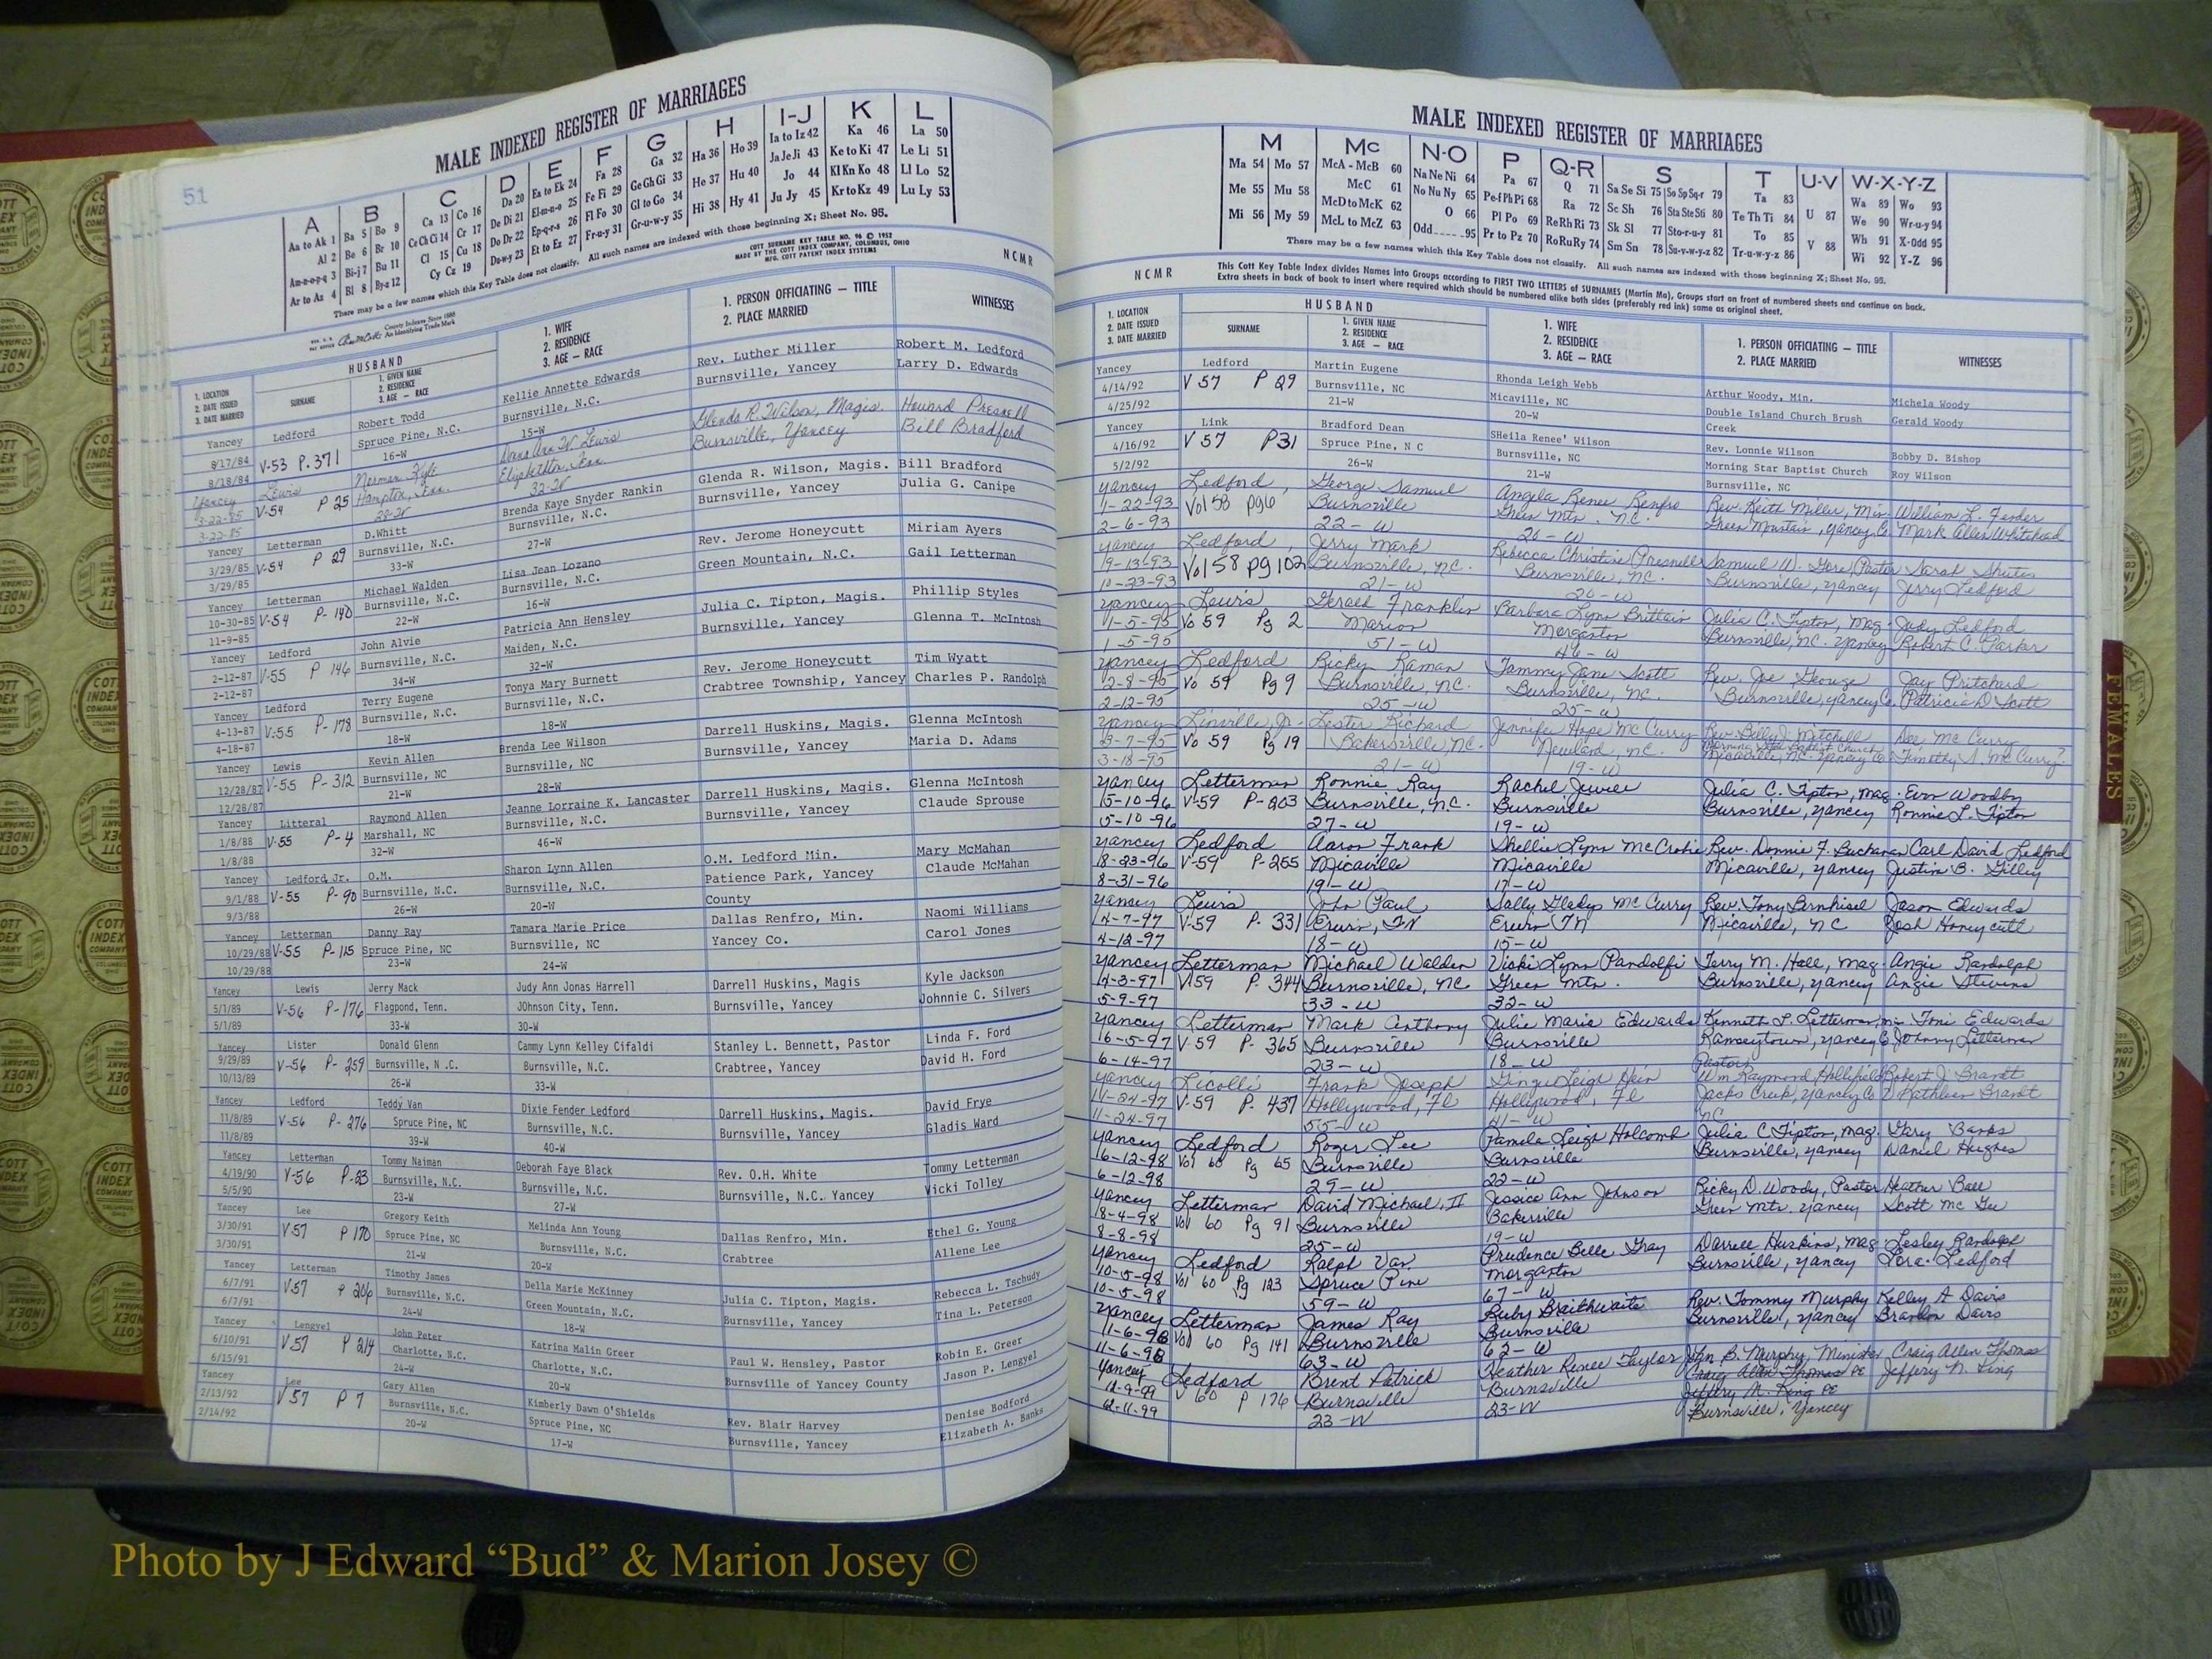 51
MALE INDEXED REGISTER OF MARRIAGES
A B C D E F G H I-J K L
Aa to Ak 1 Ba 5 Bo 9 Ca 13 Co 16 Da 20 Ea to Ek 24 Fa 28 Ga 32 Ha 36 Ho 39 Ia to Iz 42 Ka 46 La 50
Al 2 Be 6 Br 10 Ce Ch Ci 14 Cr 17 De Di 21 El-m-n-o 25 Fe Fi 29 Ge Gh Gi 33 He 37 Hu 40 Ja Je Ji 43 Ke to Ki 47 Le Li 51
Am-n-o-p-q 3 Bi-j 7 Bu 11 Cl 15 Cu 18 Do Dr 22 Ep-q-r-s 26 Fl Fo 30 Gl to Go 34 Hi 38 Hy 41 Jo 44 Kl Kn Ko 48 Ll Lo 52
Ar to Az 4 Bl 8 By-z 12 Cy Cz 19 Du-w-y 23 Et to Ez 27 Fr-u-y 31 Gr-u-w-y 35 Ju Jy 45 Kr to Kz 49 Lu Ly 53
There may be a few names which this Key Table does not classify. All such names are indexed with those beginning X; Sheet No. 95.
COTT SURNAME KEY TABLE NO. 96 © 1952
MADE BY THE COTT INDEX COMPANY, COLUMBUS, OHIO
MFG. COTT PATENT INDEX SYSTEMS
NCMR
County Indexes Since 1888
An Identifying Trade Mark
1. LOCATION
2. DATE ISSUED
3. DATE MARRIED
HUSBAND
SURNAME
1. GIVEN NAME
2. RESIDENCE
3. AGE — RACE
1. WIFE
2. RESIDENCE
3. AGE — RACE
1. PERSON OFFICIATING — TITLE
2. PLACE MARRIED
WITNESSES
Yancey Ledford Robert Todd Kellie Annette Edwards Rev. Luther Miller Robert M. Ledford
8/17/84 V-53 P.371 Spruce Pine, N.C. Burnsville, N.C. Burnsville, Yancey Larry D. Edwards
8/18/84 16-W 15-W
Yancey Lewis Norman Kyle Dana Ann W. Lewis Glenda R. Wilson, Magis. Howard Presnell
3-22-85 V-54 P 25 Hampton, Tenn. Elizabethton, Tenn. Burnsville, Yancey Bill Bradford
3-22-85 28-W 32-W
Yancey Letterman D.Whitt Brenda Kaye Snyder Rankin Glenda R. Wilson, Magis. Bill Bradford
3/29/85 V-54 P 29 Burnsville, N.C. Burnsville, N.C. Burnsville, Yancey Julia G. Canipe
3/29/85 33-W 27-W
Yancey Letterman Michael Walden Lisa Jean Lozano Rev. Jerome Honeycutt Miriam Ayers
10-30-85 V-54 P-140 Burnsville, N.C. Burnsville, N.C. Green Mountain, N.C. Gail Letterman
11-9-85 22-W 16-W
Yancey Ledford John Alvie Patricia Ann Hensley Julia C. Tipton, Magis. Phillip Styles
2-12-87 V-55 P 146 Burnsville, N.C. Maiden, N.C. Burnsville, Yancey Glenna T. McIntosh
2-12-87 34-W 32-W
Yancey Ledford Terry Eugene Tonya Mary Burnett Rev. Jerome Honeycutt Tim Wyatt
4-13-87 V-55 P-178 Burnsville, N.C. Burnsville, N.C. Crabtree Township, Yancey Charles P. Randolph
4-18-87 18-W 18-W
Yancey Lewis Kevin Allen Brenda Lee Wilson Darrell Huskins, Magis. Glenna McIntosh
12/28/87 V-55 P-312 Burnsville, NC Burnsville, NC Burnsville, Yancey Maria D. Adams
12/28/87 21-W 28-W
Yancey Litteral Raymond Allen Jeanne Lorraine K. Lancaster Darrell Huskins, Magis. Glenna McIntosh
1/8/88 V-55 P-4 Marshall, NC Burnsville, N.C. Burnsville, Yancey Claude Sprouse
1/8/88 32-W 46-W
Yancey Ledford Jr. O.M. Sharon Lynn Allen O.M. Ledford Min. Mary McMahan
9/1/88 V-55 P-90 Burnsville, N.C. Burnsville, N.C. Patience Park, Yancey County Claude McMahan
9/3/88 26-W 20-W
Yancey Letterman Danny Ray Tamara Marie Price Dallas Renfro, Min. Naomi Williams
10/29/88 V-55 P-115 Spruce Pine, NC Burnsville, NC Yancey Co. Carol Jones
10/29/88 23-W 24-W
Yancey Lewis Jerry Mack Judy Ann Jonas Harrell Darrell Huskins, Magis Kyle Jackson
5/1/89 V-56 P-176 Flagpond, Tenn. JOhnson City, Tenn. Burnsville, Yancey Johnnie C. Silvers
5/1/89 33-W 30-W
Yancey Lister Donald Glenn Cammy Lynn Kelley Cifaldi Stanley L. Bennett, Pastor Linda F. Ford
9/29/89 V-56 P-259 Burnsville, N.C. Burnsville, N.C. Crabtree, Yancey David H. Ford
10/13/89 26-W 33-W
Yancey Ledford Teddy Van Dixie Fender Ledford Darrell Huskins, Magis. David Frye
11/8/89 V-56 P-276 Spruce Pine, NC Burnsville, N.C. Burnsville, Yancey Gladis Ward
11/8/89 39-W 40-W
Yancey Letterman Tommy Naiman Deborah Faye Black Rev. O.H. White Tommy Letterman
4/19/90 V-56 P-23 Burnsville, N.C. Burnsville, N.C. Burnsville, N.C. Yancey Vicki Tolley
5/5/90 23-W 27-W
Yancey Lee Gregory Keith Melinda Ann Young Dallas Renfro, Min. Ethel G. Young
3/30/91 V57 P 170 Spruce Pine, NC Burnsville, N.C. Crabtree Allene Lee
3/30/91 21-W 20-W
Yancey Letterman Timothy James Della Marie McKinney Julia C. Tipton, Magis. Rebecca L. Tschudy
6/7/91 V57 P 206 Burnsville, N.C. Green Mountain, N.C. Burnsville, Yancey Tina L. Peterson
6/7/91 24-W 18-W
Yancey Lengyel John Peter Katrina Malin Greer Paul W. Hensley, Pastor Robin E. Greer
6/10/91 V57 P 214 Charlotte, N.C. Charlotte, N.C. Burnsville of Yancey County Jason P. Lengyel
6/15/91 24-W 20-W
Yancey Lee Gary Allen Kimberly Dawn O'Shields Rev. Blair Harvey Denise Bodford
2/13/92 V57 P 7 Burnsville, N.C. Spruce Pine, NC Burnsville, Yancey Elizabeth A. Banks
2/14/92 20-W 17-W
MALE INDEXED REGISTER OF MARRIAGES
M Mc N-O P Q-R S T U-V W-X-Y-Z
Ma 54 Mo 57 McA - McB 60 Na Ne Ni 64 Pa 67 Q 71 Sa Se Si 75 So Sp Sq-r 79 Ta 83 U 87 Wa 89 Wo 93
Me 55 Mu 58 McC 61 No Nu Ny 65 Pe-f Ph Pi 68 Ra 72 Sc Sh 76 Sta Ste Sti 80 Te Th Ti 84 V 88 We 90 Wr-u-y 94
Mi 56 My 59 McD to McK 62 O 66 Pl Po 69 Re Rh Ri 73 Sk Sl 77 Sto-r-u-y 81 To 85 Wh 91 X-Odd 95
McL to McZ 63 Odd 95 Pr to Pz 70 Ro Ru Ry 74 Sm Sn 78 Su-v-w-y-z 82 Tr-u-w-y-z 86 Wi 92 Y-Z 96
There may be a few names which this Key Table does not classify. All such names are indexed with those beginning X; Sheet No. 95.
NCMR
This Cott Key Table Index divides Names into Groups according to FIRST TWO LETTERS of SURNAMES (Martin Ma), Groups start on front of numbered sheets and continue on back.
Extra sheets in back of book to insert where required which should be numbered alike both sides (preferably red ink) same as original sheet.
1. LOCATION
2. DATE ISSUED
3. DATE MARRIED
HUSBAND
SURNAME
1. GIVEN NAME
2. RESIDENCE
3. AGE — RACE
1. WIFE
2. RESIDENCE
3. AGE — RACE
1. PERSON OFFICIATING — TITLE
2. PLACE MARRIED
WITNESSES
Yancey Ledford Martin Eugene Rhonda Leigh Webb Arthur Woody, Min. Michela Woody
4/14/92 V 57 P 29 Burnsville, NC Micaville, NC Double Island Church Brush Creek Gerald Woody
4/25/92 21-W 20-W
Yancey Link Bradford Dean SHeila Renee' Wilson Rev. Lonnie Wilson Bobby D. Bishop
4/16/92 V 57 P31 Spruce Pine, N C Burnsville, NC Morning Star Baptist Church Roy Wilson
5/2/92 26-W 21-W Burnsville, NC
Yancey Ledford, George Samuel Angela Renee Renfro Rev. Keith Miller, Min. William L. Fender
1-22-93 Vol 58 pg 6 Burnsville Green Mtn. N.C. Green Mountain, Yancey Co Mark Allen Whitehead
2-6-93 22-W 20-W
Yancey Ledford, Jerry Mark Rebecca Christine Presnell Samuel W. Gore, Pastor Sarah Shutes
9-13-93 Vol 58 pg 102 Burnsville, NC. Burnsville, NC. Burnsville, Yancey Jerry Ledford
10-23-93 21-W 20-W
Yancey Lewis Gerald Franklin Barbara Lynn Brittain Julia C. Tipton, Mag. Judy Ledford
1-5-95 Vo 59 Pg 2 Marion Morganton Burnsville, NC. Yancey Robert C. Parker
1-5-95 51-W 46-W
Yancey Ledford Ricky Raman Tammy Jane Scott Rev. Joe George Jay Pritchard
2-8-95 Vo 59 Pg 9 Burnsville, NC. Burnsville, NC. Burnsville, Yancey Co. Patricia D. Scott
2-12-95 25-W 25-W
Yancey Linville, Jr. Lester Richard Jennifer Hope McCurry Rev. Billy J. Mitchell Dee McCurry
3-7-95 Vo 59 Pg 19 Bakersville, NC. Newland, NC. Morning Star Baptist Church Micaville, NC. Yancey Co Timothy S. McCurry
3-18-95 21-W 19-W
Yancey Letterman Ronnie Ray Rachel Julia C. Tipton, Mag. Woodby
5-10-96 V-59 P-203 Burnsville, N.C. Burnsville Burnsville, Yancey Ronnie L. Tipton
5-10-96 27-W 19-W
Yancey Ledford Aaron Frank Shellie Lynn McCrohie Rev. Donnie F. Buchanan Carl David Ledford
8-23-96 V-59 P-255 Micaville Micaville Micaville, Yancey Justin B. Gilley
8-31-96 19-W 17-W
Yancey Lewis John Paul Sally Gladys McCurry Rev. Tony Barnhisel Jason Edwards
4-7-97 V-59 P. 331 Erwin, TN Erwin TN Micaville, NC Josh Honeycutt
4-12-97 18-W 15-W
Yancey Letterman Michael Walden Vicki Lynn Pandolfi Terry M. Hall, Mag. Angie Randolph
4-3-97 V-59 P. 344 Burnsville, NC Green Mtn. Burnsville, Yancey Angie Stevens
5-9-97 33-W 32-W
Yancey Letterman Mark Anthony Julie Marie Edwards Kenneth L. Letterman, Min Toni Edwards
6-5-97 V-59 P- 365 Burnsville Burnsville Ramseytown, Yancey Co Johnny Letterman
6-14-97 23-W 18-W Pastor
Yancey Licolli Frank Joseph Ginger Leigh Wm Raymond Hollifield Robert J. Brandt
11-24-97 V-59 P- 437 Hollywood, Fl Hollywood, Fl Jacks Creek, Yancey Co Kathleen Brandt
11-24-97 55-W 41-W NC
Yancey Ledford Roger Lee Pamela Leigh Holcomb Julia C Tipton, Mag. Gary Banks
6-12-98 Vol 60 Pg 65 Burnsville Burnsville Burnsville, Yancey Daniel Hughes
6-12-98 29-W 22-W
Yancey Letterman David Michael, II Jessica Ann Johnson Ricky D. Woody, Pastor Heather Ball
8-4-98 Vol 60 Pg 91 Burnsville Bakersville Green Mtn, Yancey Scott McGee
8-8-98 25-W 19-W
Yancey Ledford Ralph Van Prudence Belle Gray Darrell Huskins, Mag. Lesley Randolph
10-5-98 Vol 60 Pg 123 Spruce Pine Morganton Burnsville, Yancey Lora Ledford
10-5-98 59-W 67-W
Yancey Letterman James Ray Ruby Braithwaite Rev. Tommy Murphy Kelley A Davis
11-6-98 Vol 60 Pg 141 Burnsville Burnsville Burnsville, Yancey Brandon Davis
11-6-98 63-W 62-W
Yancey Ledford Brent Patrick Heather Renee Taylor John B. Murphy, Minister Craig Allen Thomas
V 60 P 176 Burnsville Burnsville Craig Allen Thomas PE Jeffery N. King
23-W 23-W Jeffery N. King PE
Burnsville, Yancey
FEMALES
Photo by J Edward “Bud” & Marion Josey ©